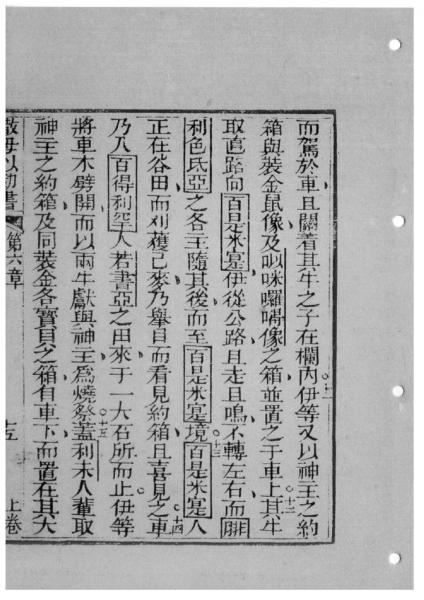 而駕於車且關着其牛之子在欄內伊等又以神主之約
箱與裝金鼠像及以咪囉嘶像之箱並置之于車上其牛
取直路向百是米寔伊從公路且走且鳴不轉左右而啡
利色氐亞之各主隨其後而至百是米寔境百是米寔人
正在谷田而刈穫己麥乃舉目而看見約箱且喜見之車
乃入百得利空人若書亞之田來于一大石所而止伊等
將車木劈開而以兩牛獻與神主為燒祭蓋利未人輩取
神主之約箱及同裝金各寶貝之箱有車下而置在其大
撒母以勿書 第六章 上卷